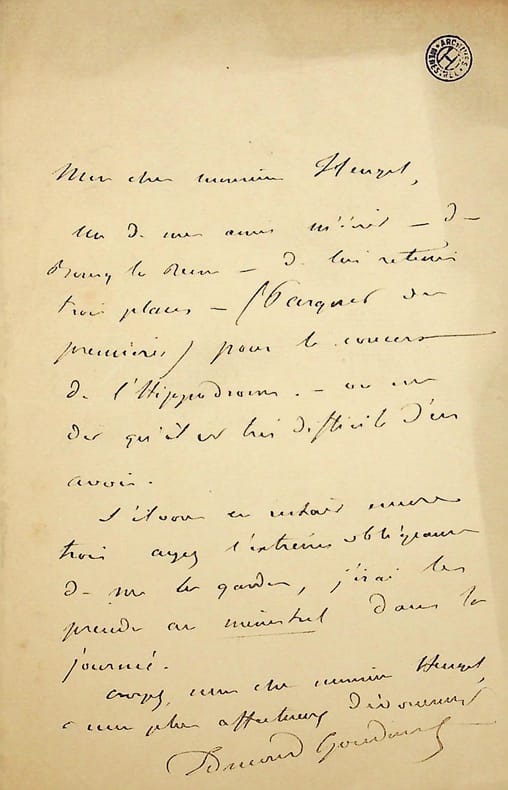 ARCHIVES HEUGEL MENESTREL
Mon cher monsieur Heugel,
Un de mes amis m'écrit — de
Bourg la Reine — de lui retenir
trois places — (Parquet ou
premières) pour le concert
de l'Hippodrome. — on me
dit qu'il est très difficile d'en
avoir.
S'il vous en restait encore
trois ayez l'extrême obligeance
de me les garder, j'irai les
prendre au ménestrel dans la
journée.
Croyez, mon cher monsieur Heugel,
à mon plus affectueux dévouement
Edmond